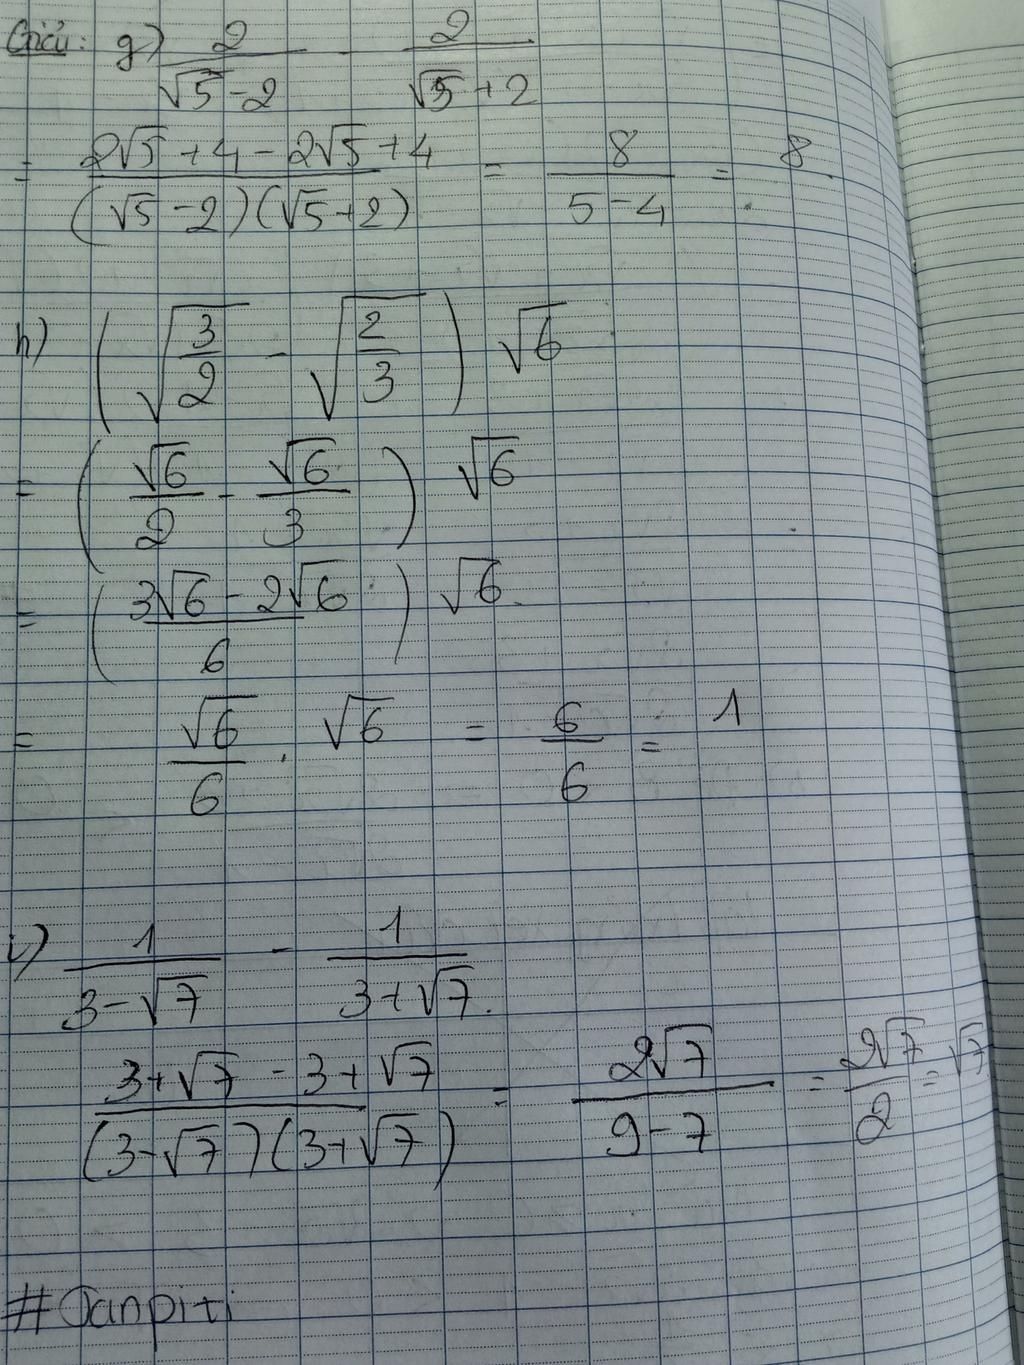 Giải: g) 2/(√5 - 2) - 2/(√5 + 2)
= (2√5 + 4 - 2√5 + 4)/((√5 - 2)(√5 + 2)) = 8/(5 - 4) = 8.
h) (√(3/2) - √(2/3)) √6
= (√6/2 - √6/3) √6
= ((3√6 - 2√6)/6) √6.
= √6/6 . √6 = 6/6 = 1
i) 1/(3 - √7) - 1/(3 + √7).
(3 + √7 - 3 + √7)/((3 - √7)(3 + √7)) = 2√7/(9 - 7) = 2√7/2 = √7
#Janpiti